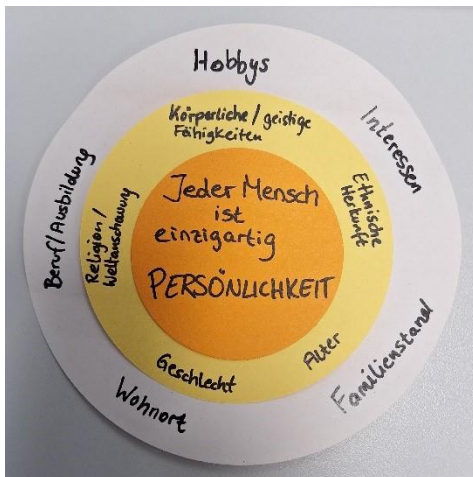 Hobbys
Interessen
Familienstand
Wohnort
Beruf/Ausbildung
Körperliche/geistige
Fähigkeiten
Ethnische
Herkunft
Alter
Geschlecht
Religion/
Weltanschauung
Jeder Mensch
ist
einzigartig
PERSÖNLICHKEIT